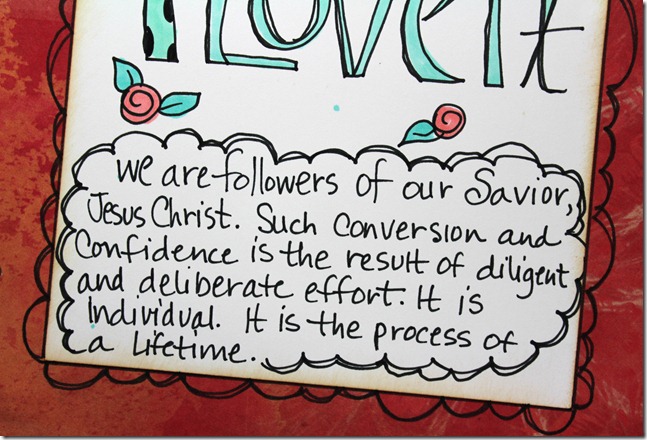 I LOVE It
We are followers of our Savior,
Jesus Christ. Such conversion and
Confidence is the result of diligent
and deliberate effort. It is
Individual. It is the process of
a Lifetime.